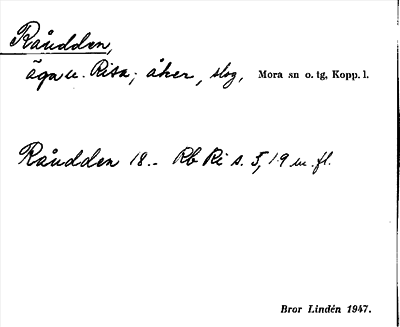 Råudden,
äga u. Risa; åker, slog, Mora sn o. tg, Kopp. l.
Råudden 18.- Rb Ri s. 5, 19 m. fl.
Bror Lindén 1947.